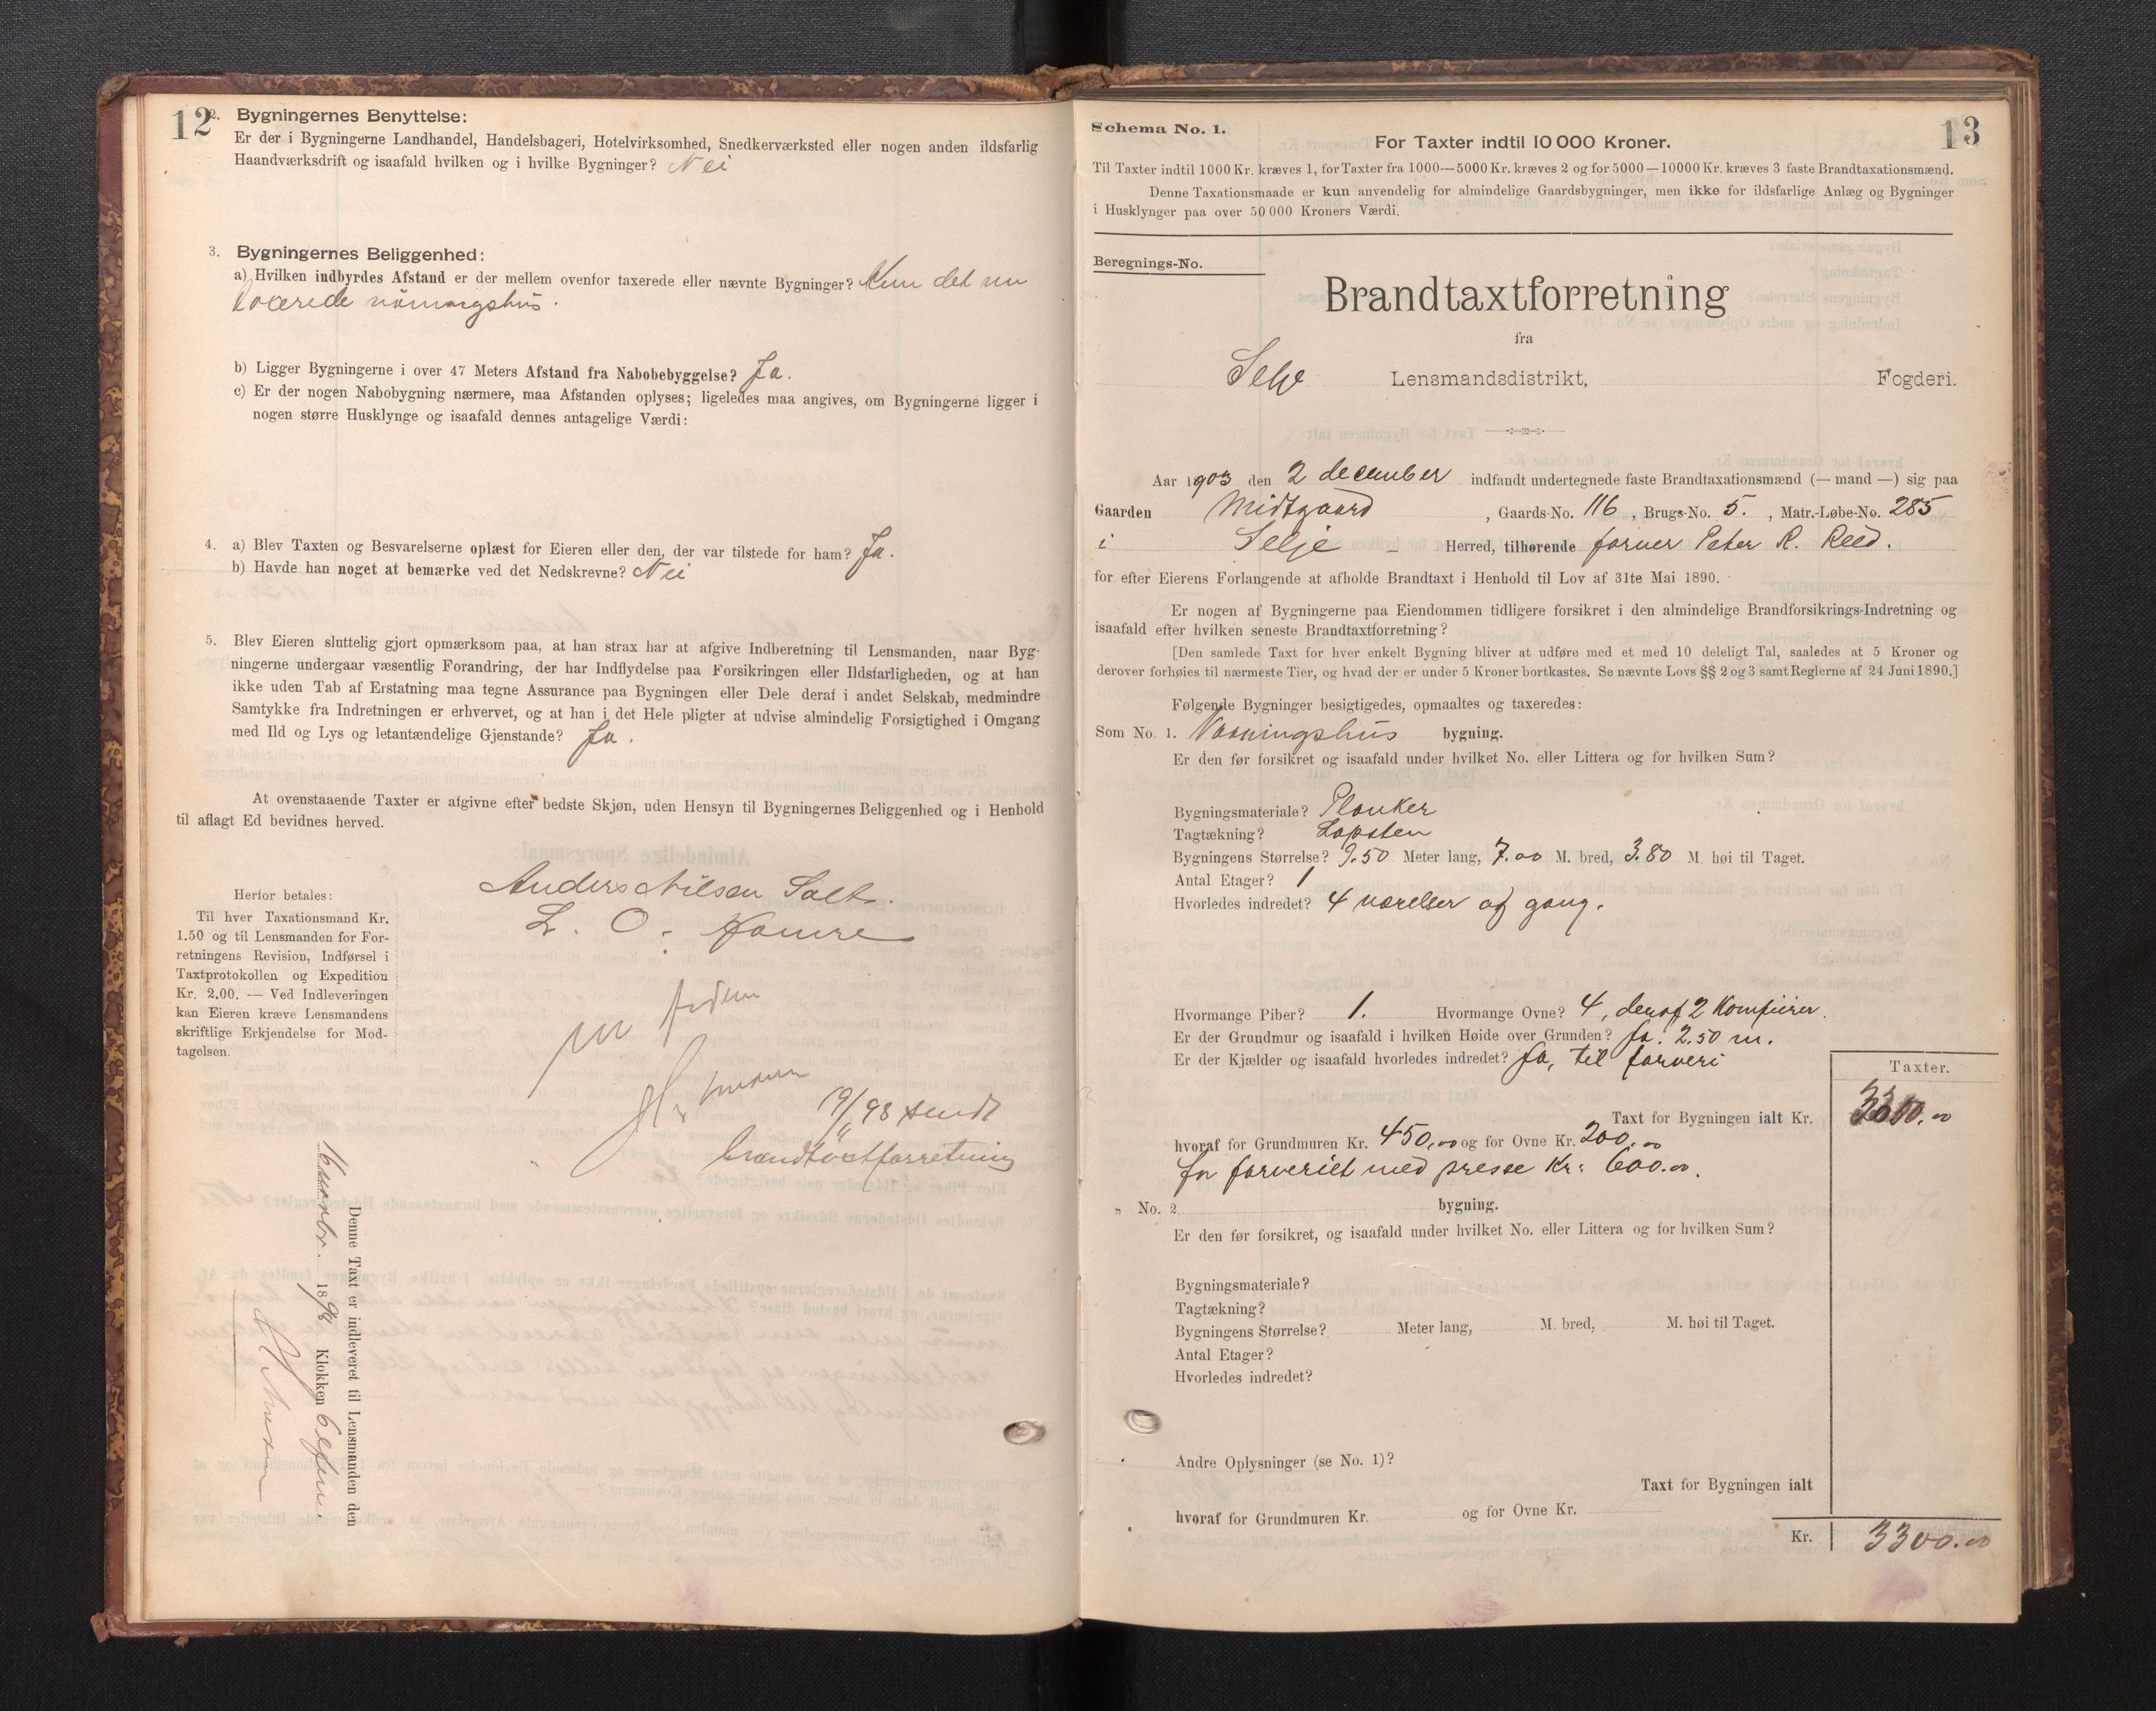 12
2. Bygningernes Benyttelse:
Er der i Bygningerne Landhandel, Handelsbageri, Hotelvirksomhed, Snedkerværksted eller nogen anden ildsfarlig
Haandværksdrift og isaafald hvilken og i hvilke Bygninger? Nei
3. Bygningernes Beliggenhed:
a) Hvilken indbyrdes Afstand er der mellem ovenfor taxerede eller nævnte Bygninger? Kun det nu
b) Ligger Bygningerne i over 47 Meters Afstand fra Nabobebyggelse? Ja.
c) Er der nogen Nabobygning nærmere, maa Afstanden oplyses; ligeledes maa angives, om Bygningerne ligger i
nogen større Husklynge og isaafald dennes antagelige Værdi:
4. a) Blev Taxten og Besvarelserne oplæst for Eieren eller den, der var tilstede for ham? Ja.
b) Havde han noget at bemærke ved det Nedskrevne? Nei
5. Blev Eieren sluttelig gjort opmærksom paa, at han strax har at afgive Indberetning til Lensmanden, naar Byg-
ningerne undergaar væsentlig Forandring, der har Indflydelse paa Forsikringen eller Ildsfarligheden, og at han
ikke uden Tab af Erstatning maa tegne Assurance paa Bygningen eller Dele deraf i andet Selskab, medmindre
Samtykke fra Indretningen er erhvervet, og at han i det Hele pligter at udvise almindelig Forsigtighed i Omgang
med Ild og Lys og letantændelige Gjenstande? Ja.
At ovenstaaende Taxter er afgivne efter bedste Skjøn, uden Hensyn til Bygningernes Beliggenhed og i Henhold
til aflagt Ed bevidnes herved.
Anders Nilsen Salt.
L. O.
Herfor betales:
Til hver Taxationsmand Kr.
1.50 og til Lensmanden for For-
retningens Revision, Indførsel i
Taxtprotokollen og Expedition
Kr. 2.00. — Ved Indleveringen
kan Eieren kræve Lensmandens
skriftlige Erkjendelse for Mod-
tagelsen.
19/11 98 sendt
brandtaxtforretning
Denne Taxt er indleveret til Lensmanden den
16 1898 Klokken 6
13
Schema No. 1.
For Taxter indtil 10 000 Kroner.
Til Taxter indtil 1000 Kr. kræves 1, for Taxter fra 1000—5000 Kr. kræves 2 og for 5000—10000 Kr. kræves 3 faste Brandtaxationsmænd.
Denne Taxationsmaade er kun anvendelig for almindelige Gaardsbygninger, men ikke for ildsfarlige Anlæg og Bygninger
i Husklynger paa over 50 000 Kroners Værdi.
Beregnings-No.
Brandtaxtforretning
fra
Selje Lensmandsdistrikt, Fogderi.
Aar 1903 den 2 december indfandt undertegnede faste Brandtaxationsmænd (— mand —) sig paa
Gaarden Midtgaard, Gaards-No. 116, Brugs-No. 5., Matr.-Løbe-No. 285
i Selje Herred, tilhørende farver Peter R. Reed.
for efter Eierens Forlangende at afholde Brandtaxt i Henhold til Lov af 31te Mai 1890.
Er nogen af Bygningerne paa Eiendommen tidligere forsikret i den almindelige Brandforsikrings-Indretning og
isaafald efter hvilken seneste Brandtaxtforretning?
[Den samlede Taxt for hver enkelt Bygning bliver at udføre med et med 10 deleligt Tal, saaledes at 5 Kroner og
derover forhøies til nærmeste Tier, og hvad der er under 5 Kroner bortkastes. Se nævnte Lovs §§ 2 og 3 samt Reglerne af 24 Juni 1890.]
Følgende Bygninger besigtigedes, opmaaltes og taxeredes:
Som No. 1. Vaaningshus bygning.
Er den før forsikret og isaafald under hvilket No. eller Littera og for hvilken Sum?
Bygningsmateriale? Planker
Tagtækning? Lapsten
Bygningens Størrelse? 9.50 Meter lang, 7.00 M. bred, 3.80 M. høi til Taget.
Antal Etager? 1
Hvorledes indredet? 4 værelser og gang.
Hvormange Piber? 1. Hvormange Ovne? 4, deraf 2 Komfurer.
Er der Grundmur og isaafald i hvilken Høide over Grunden? Ja. 2.50 m.
Er der Kjælder og isaafald hvorledes indredet? Ja, til farveri
Taxter.
Taxt for Bygningen ialt Kr. 3300.00
hvoraf for Grundmuren Kr. 450,00 og for Ovne Kr. 200,00
for farveriet med presse Kr: 600.00.
„ No. 2 bygning.
Er den før forsikret, og isaafald under hvilket No. eller Littera og for hvilken Sum?
Bygningsmateriale?
Tagtækning?
Bygningens Størrelse? Meter lang, M. bred, M. høi til Taget.
Antal Etager?
Hvorledes indredet?
Andre Oplysninger (se No. 1)?
Taxt for Bygningen ialt
hvoraf for Grundmuren Kr. og for Ovne Kr.
Kr. 3300.00